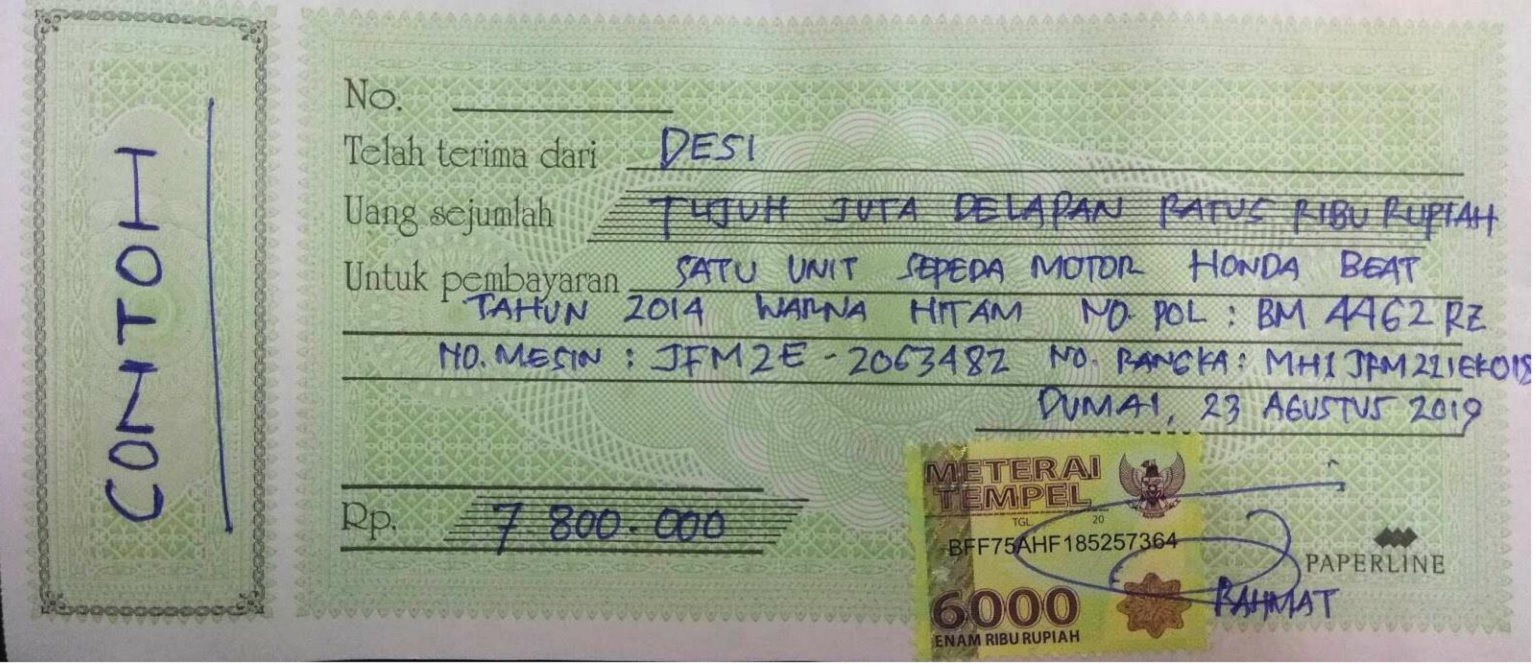 CONTOH
No.
Telah terima dari DESI
Uang sejumlah TUJUH JUTA DELAPAN RATUS RIBU RUPIAH
Untuk pembayaran SATU UNIT SEPEDA MOTOR HONDA BEAT
TAHUN 2014 WARNA HITAM NO. POL : BM 4462 RZ
NO. MESIN : JFM2E - 2063482 NO. RANGKA :
DUMAI, 23 AGUSTUS 2019
Rp. 7 800.000
METERAI
TEMPEL
TGL 20
BFF75AHF185257364
6000
ENAM RIBU RUPIAH
PAPERLINE
RAHMAT